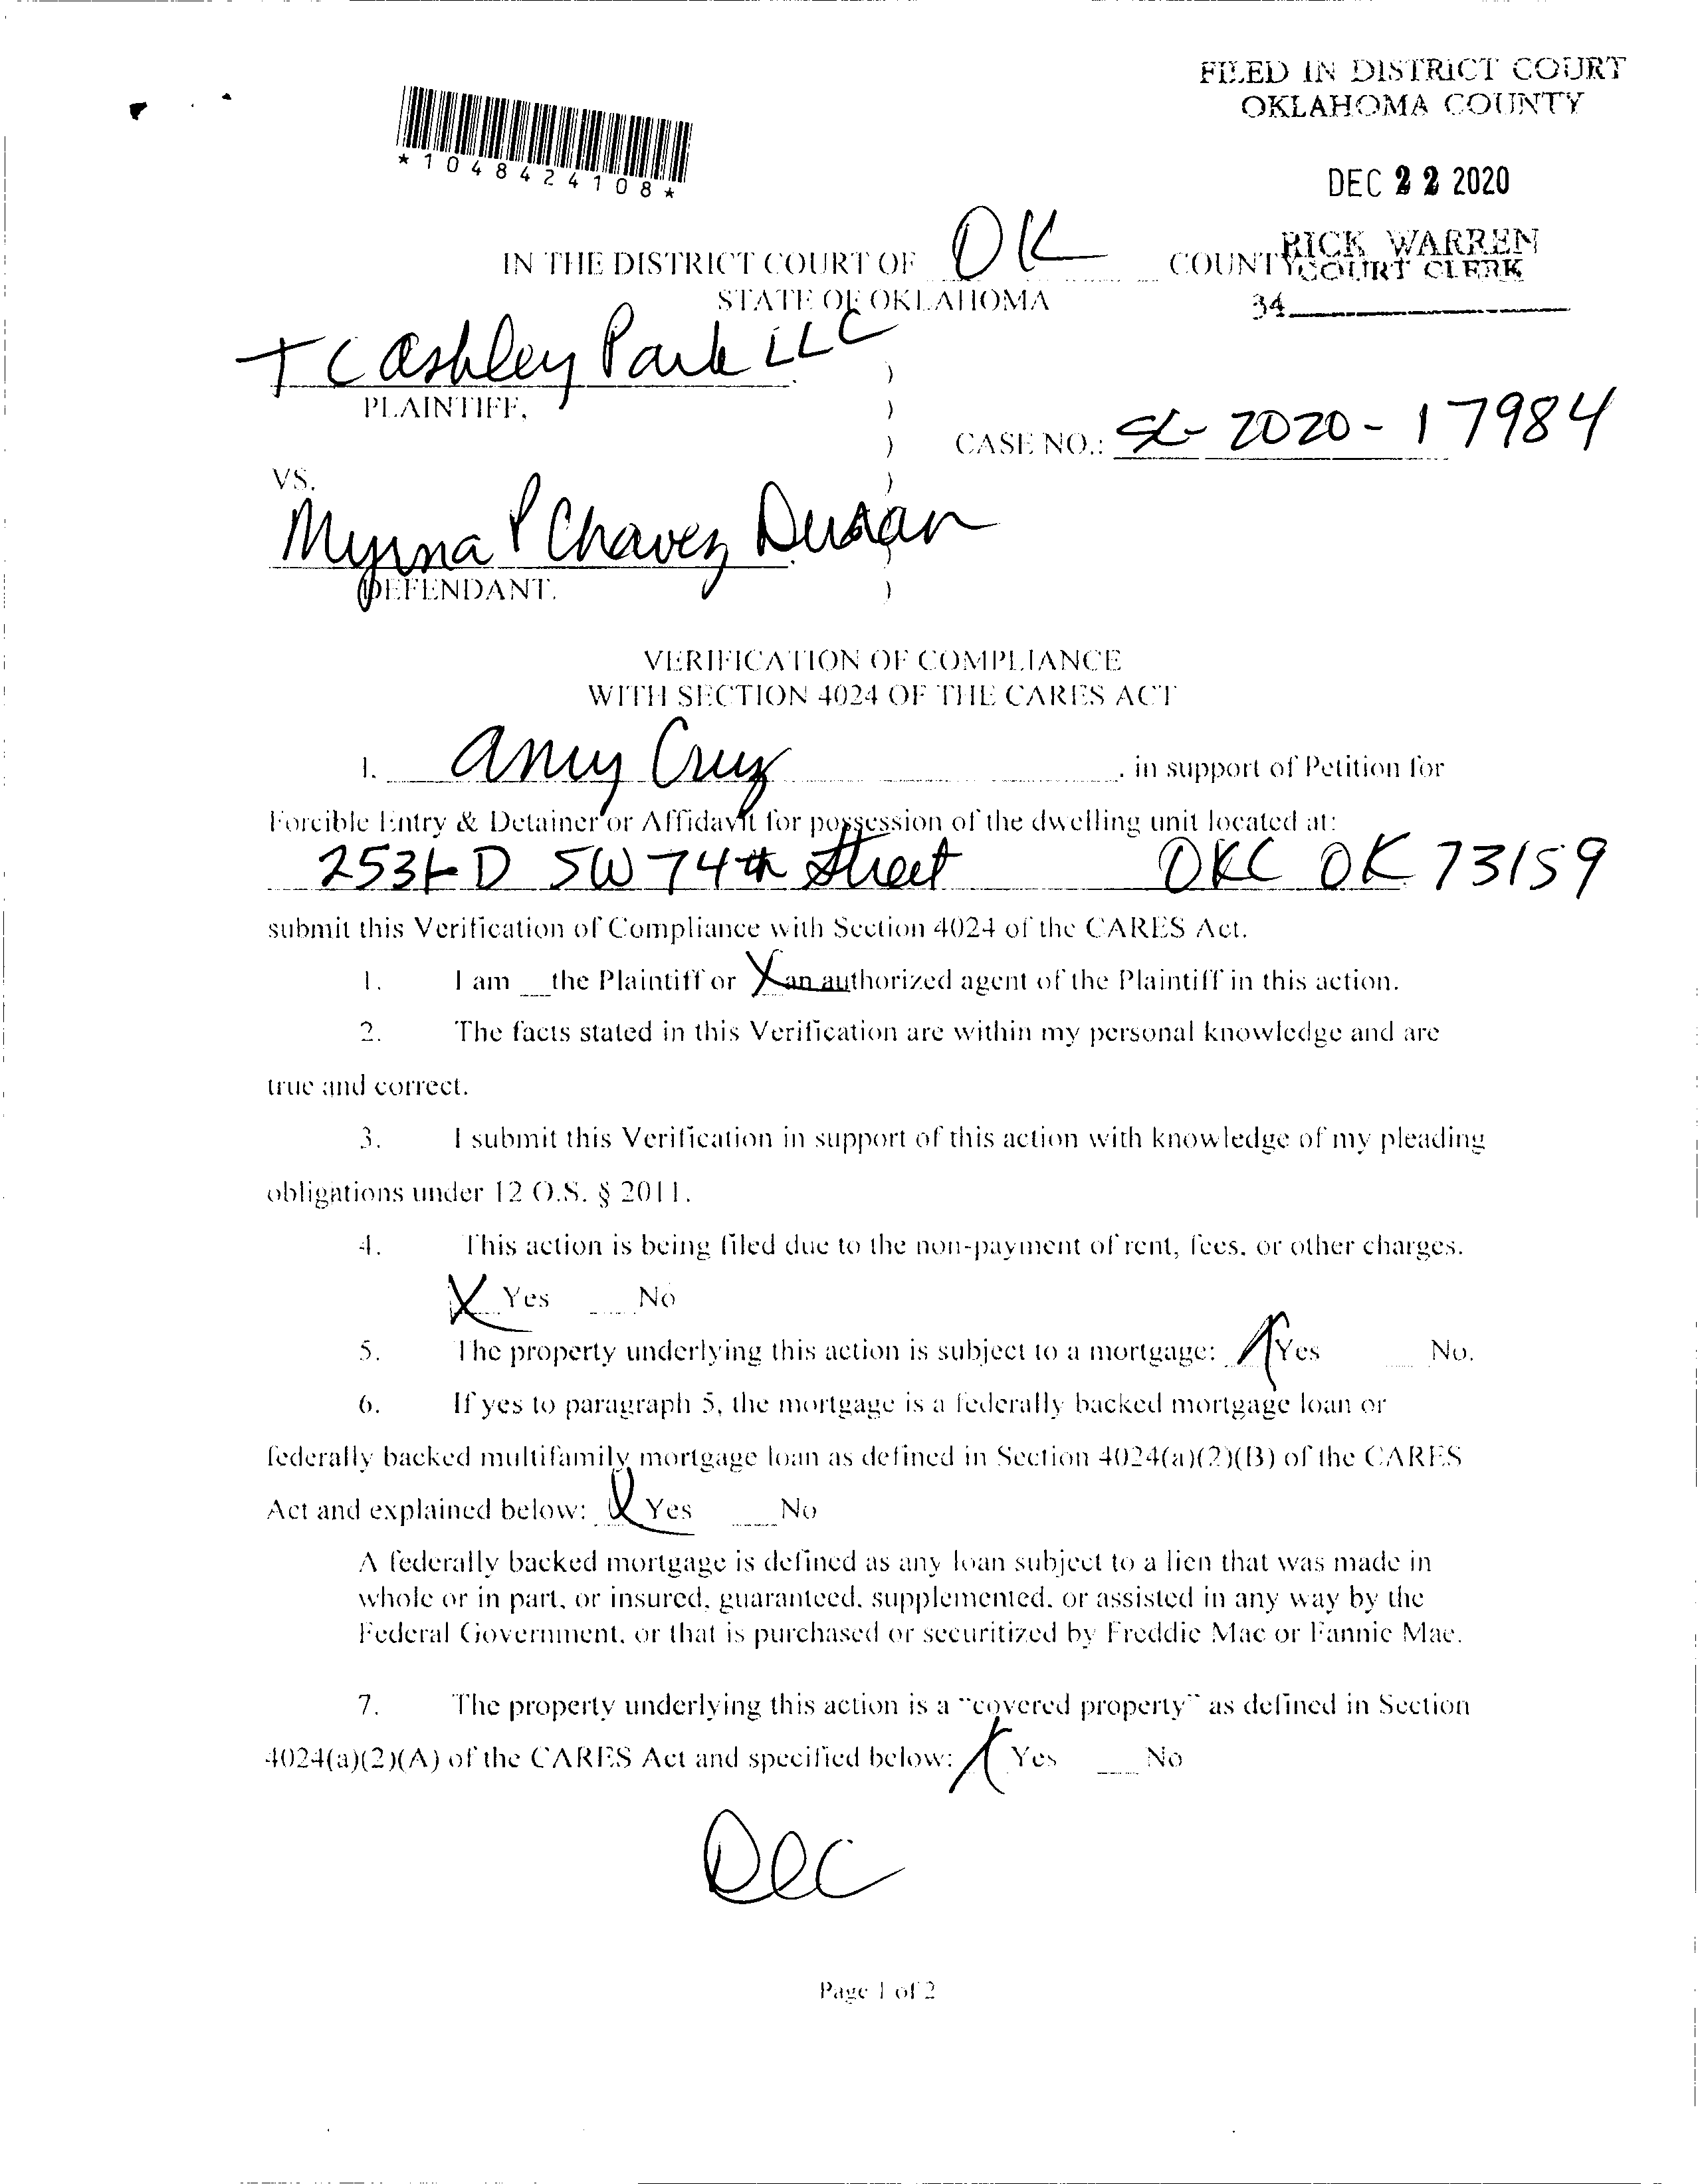 FILED IN DISTRICT COURT
OKLAHOMA COUNTY
*1048424108*
DEC 22 2020
RICK WARREN
COURT CLERK
34
IN THE DISTRICT COURT OF OK COUNTY
STATE OF OKLAHOMA
TC Ashley Park LLC
PLAINTIFF,
)
)
) CASE NO.: SC-2020-17984
VS. )
Myrna P Chavez Duran
DEFENDANT. )
VERIFICATION OF COMPLIANCE
WITH SECTION 4024 OF THE CARES ACT
I, Amy Cruz, in support of Petition for
Forcible Entry & Detainer or Affidavit for possession of the dwelling unit located at:
SW 74th Street OKC OK 73159
submit this Verification of Compliance with Section 4024 of the CARES Act.
1. I am __the Plaintiff or X an authorized agent of the Plaintiff in this action.
2. The facts stated in this Verification are within my personal knowledge and are
true and correct.
3. I submit this Verification in support of this action with knowledge of my pleading
obligations under 12 O.S. § 2011.
4. This action is being filed due to the non-payment of rent, fees, or other charges.
X Yes ___ No
5. The property underlying this action is subject to a mortgage: X Yes ___ No.
6. If yes to paragraph 5, the mortgage is a federally backed mortgage loan or
federally backed multifamily mortgage loan as defined in Section 4024(a)(2)(B) of the CARES
Act and explained below: X Yes ___No
A federally backed mortgage is defined as any loan subject to a lien that was made in
whole or in part, or insured, guaranteed, supplemented, or assisted in any way by the
Federal Government, or that is purchased or securitized by Freddie Mac or Fannie Mae.
7. The property underlying this action is a "covered property" as defined in Section
4024(a)(2)(A) of the CARES Act and specified below: X Yes ___ No
Dec
Page 1 of 2